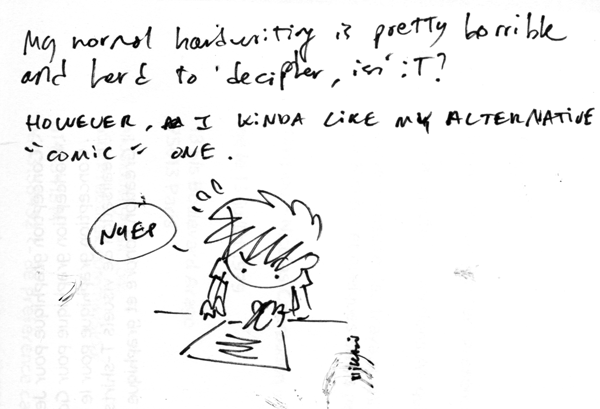 My normal handwriting is pretty horrible
and hard to decipher, isn't it?
HOWEVER, I KINDA LIKE MY ALTERNATIVE
"COMIC" ONE.